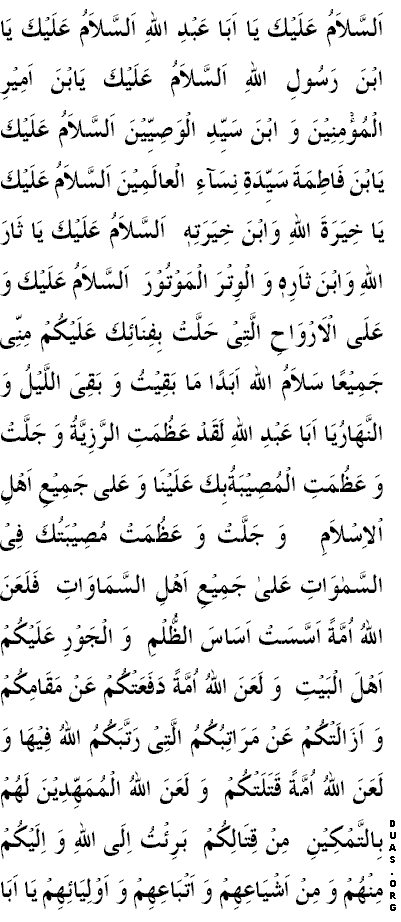 اَلسَّلاَمُ عَلَيْكَ يَا اَبَا عَبْدِ اللهِ اَلسَّلاَمُ عَلَيْكَ يَا
ابْنَ رَسُولِ اللهِ اَلسَّلاَمُ عَلَيْكَ يَابْنَ اَمِيْرِ
الْمُؤْمِنِيْنَ وَ ابْنَ سَيِّدِ الْوَصِيِّيْنَ اَلسَّلاَمُ عَلَيْكَ
يَابْنَ فَاطِمَةَ سَيِّدَةِ نِسَاۤءِ الْعالَمِيْنَ اَلسَّلاَمُ عَلَيْكَ
يَا خِيَرَةَ اللهِ وَابْنَ خِيَرَتِهٖ اَلسَّلاَمُ عَلَيْكَ يَا ثَارَ
اللهِ وَابْنَ ثَارِهٖ وَ الْوِتْرَ الْمَوْتُوْرَ اَلسَّلاَمُ عَلَيْكَ وَ
عَلَى الْاَرْوَاحِ الَّتِىْ حَلَّتْ بِفِنَائِكَ عَلَيْكُمْ مِنِّى
جَمِيْعًا سَلاَمُ الله اَبَدًا مَا بَقِيْتُ وَ بَقِىَ اللَّيْلُ وَ
النَّهَارُيَا اَبَا عَبْدِ اللهِ لَقَدْ عَظُمَتِ الرَّزِيَّةُ وَ جَلَّتْ
وَ عَظُمَتِ الْمُصِيْبَةُبِكَ عَلَيْنَا وَ عَلى جَمِيْعِ اَهْلِ
اْلاِسْلاَمِ وَ جَلَّتْ وَ عَظُمَتْ مُصِيْبَتُكَ فِىْ
السَّمٰوَاتِ عَلىٰ جَمِيْعِ اَهْلِ السَّمَاوَاتِ فَلَعَنَ
اللهُ اُمَّةً اَسَّسَتْ اَسَاسَ الظُّلْمِ وَ الْجَوْرِ عَلَيْكُمْ
اَهْلَ الْبَيْتِ وَ لَعَنَ اللهُ اُمَّةً دَفَعَتْكُمْ عَنْ مَقَامِكُمْ
وَ اَزَالَتْكُمْ عَنْ مَرَاتِبُكُمُ الَّتِىْ رَتَّبَكُمُ اللهُ فِيْهَا وَ
لَعَنَ اللهُ اُمَّةً قَتَلَتْكُمْ وَ لَعَنَ اللهُ الْمُمَهِّدِيْنَ لَهُمْ
بِالتَّمْكِيْنِ مِنْ قِتَالِكُمْ بَرِئْتُ اِلَى اللهِ وَ اِلَيْكُمْ
مِنْهُمْ وَ مِنْ اَشْيَاعِهِمْ وَ اَتْبَاعِهِمْ وَ اَوْلِيَائِهِمْ يَا اَبَا
DUAS.ORG